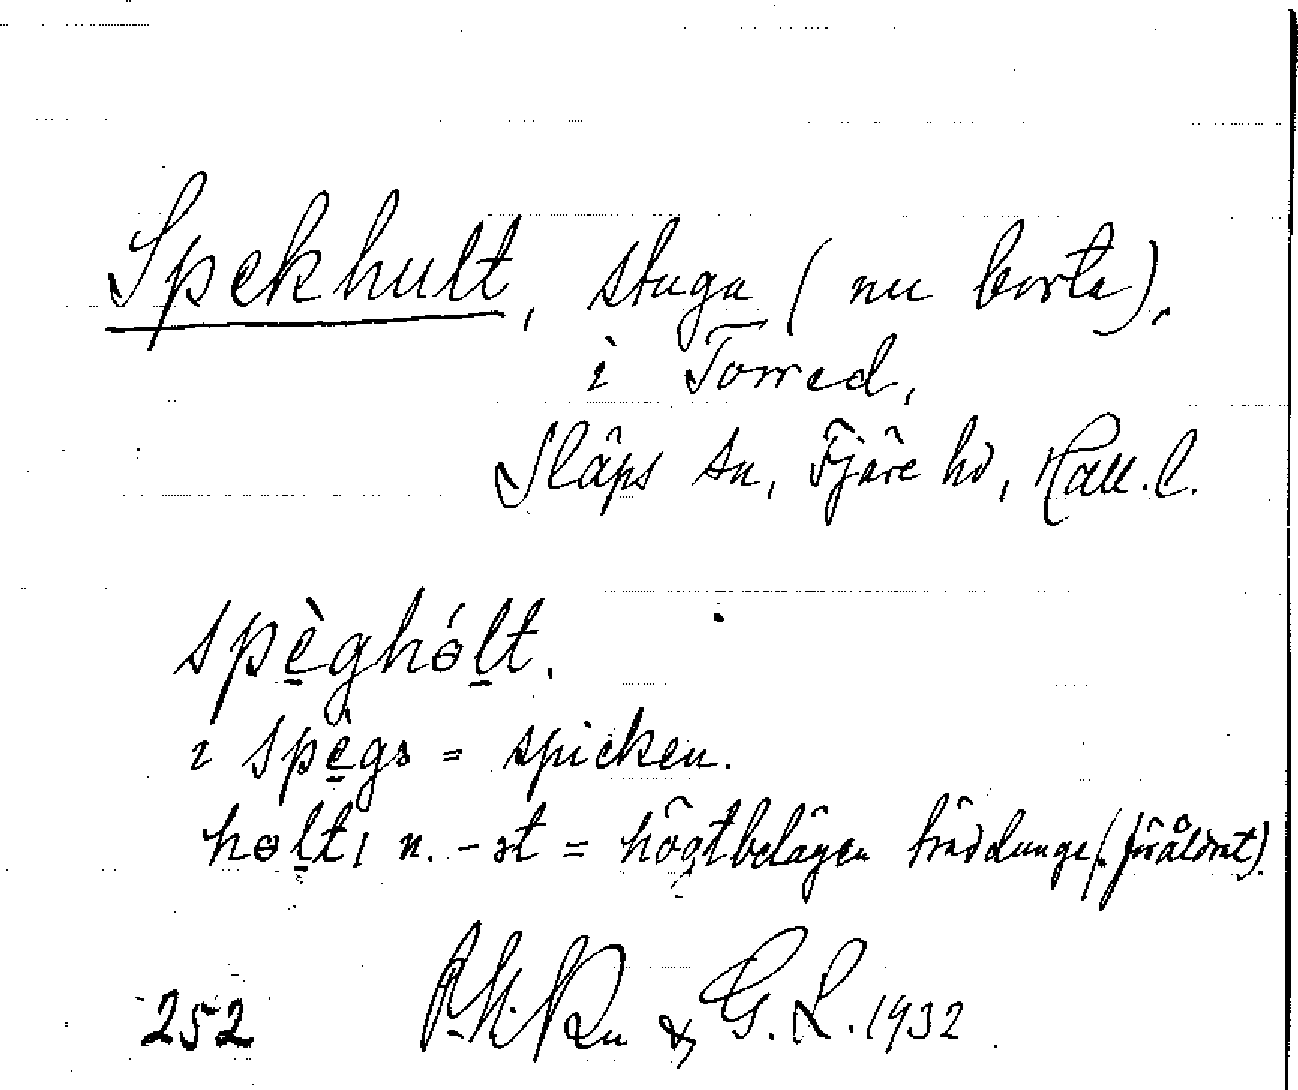 Spekhult, stuga (nu borta),
i Torred,
Släps sn, Fjäre hd, Hall. l.
spè̱ghólt.
i spè̱gə = spicken.
hɵlt, n. -ət = högtbelägen träddunge (föråldrat).
252 & G. L. 1932